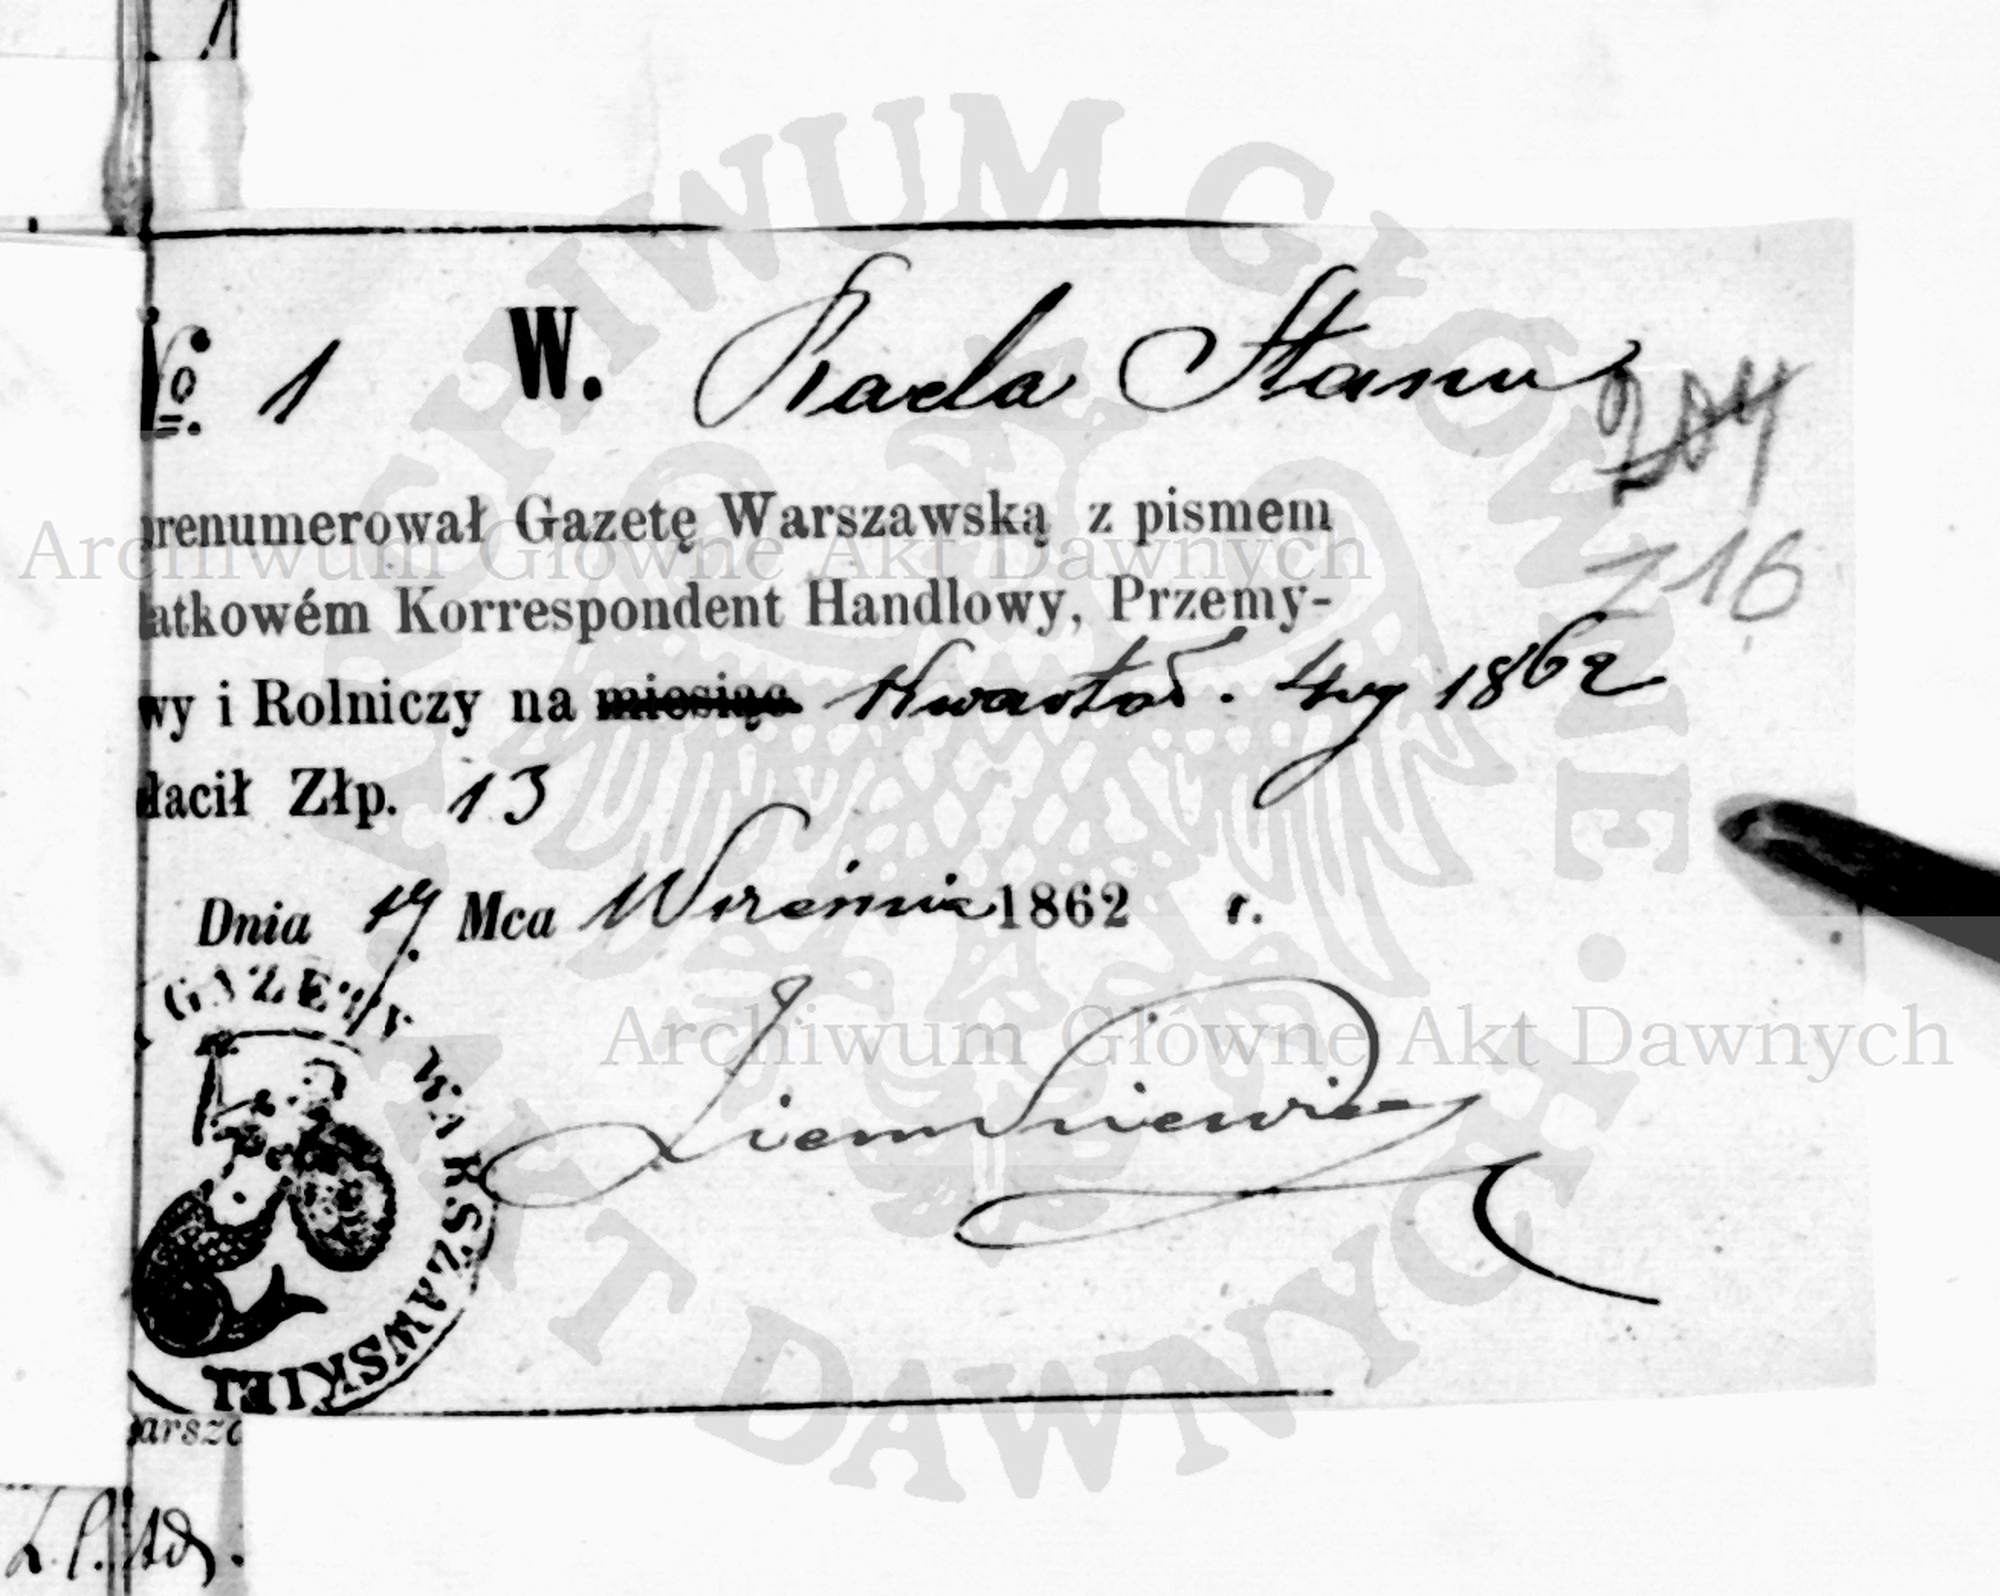 1
No. 1 W. Rada Stanu
204
renumerował Gazetę Warszawską z pismem
216
atkowém Korrespondent Handlowy, Przemy-
wy i Rolniczy na miesiąc Kwartał. 4ty 1862
łacił Złp. 13
Dnia 17 Mca Września 1862 r.
GAZETY WARSZAWSKIEJ
Ziemkiewicz
arsz
ARCHIWUM GŁÓWNE AKT DAWNYCH
Archiwum Główne Akt Dawnych
Archiwum Główne Akt Dawnych